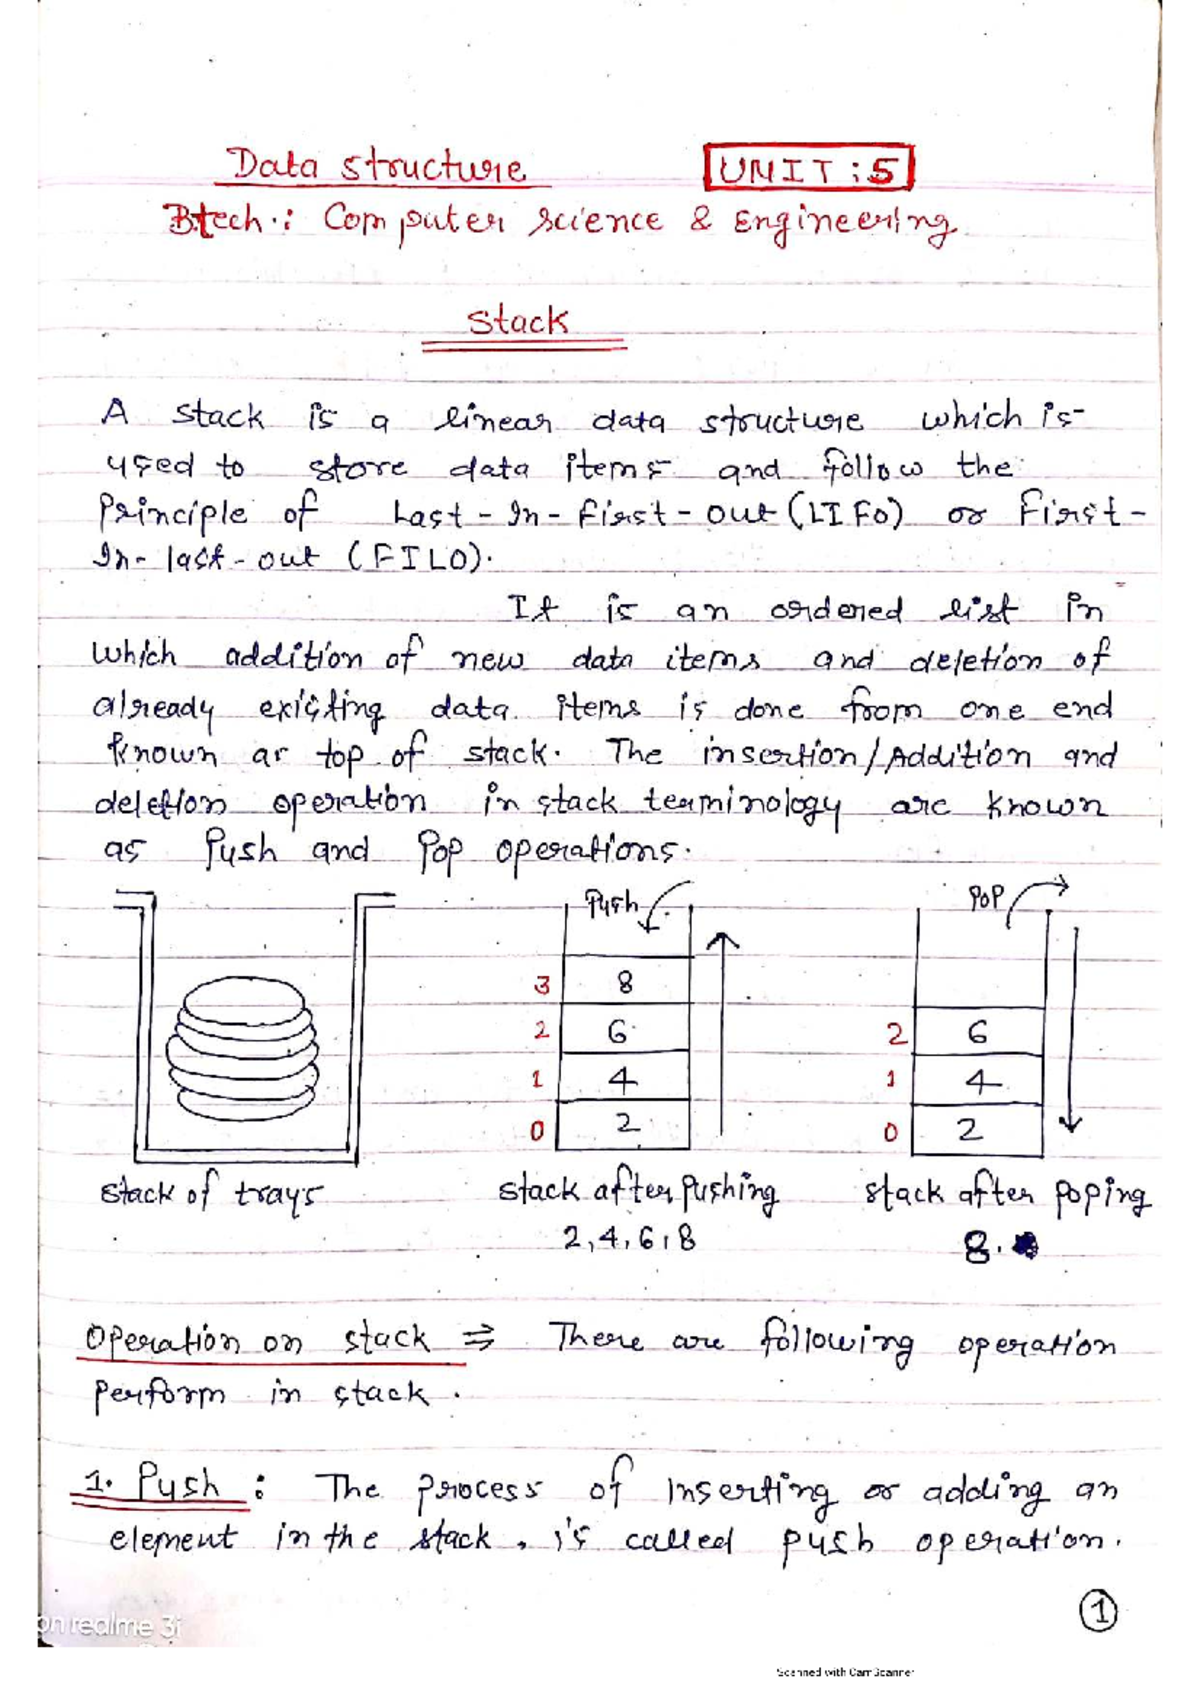 Data structure UNIT : 5
B.tech.: Computer science & Engineering
Stack
A stack is a linear data structure which is
used to store data items and follow the
Principle of Last-In-first-out (LIFO) or First-
In-last-out (FILO).
It is an ordered list in
which addition of new data items and deletion of
already existing data items is done from one end
known as top of stack. The insertion/Addition and
deletion operation in stack terminology are known
as Push and Pop operations.
Push POP
3 8
2 6 2 6
1 4 1 4
0 2 0 2
stack of trays stack after Pushing stack after Poping
2,4,6,8 8.
Operation on stack ⇒ There are following operation
perform in stack.
1. Push : The process of Inserting or adding an
element in the stack, is called push operation.
1
on realme 3i
Scanned with CamScanner